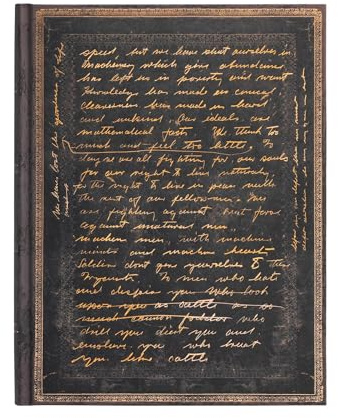 speed, but we have shut ourselves in
Machinery which gives abundance
has left us in poverty and want
Knowledge has made us cynical
cleverness has made us hard
and unkind. Our ideals are
mathematical facts. We think to
much and feel too little. To
day we are all fighting for our souls
for our right to live naturally,
for the right to live in peace with
the rest of our fellow men. We
are fighting against brut force
against unnatural men,
machine men, with machine
minds and machine hearts
Soldiers dont give yourselves to these
men who hate
and despise you who look
upon you as cattle
cannon fodder who
drill you diet you and
enslave you who treat
you like cattle
We have lost the